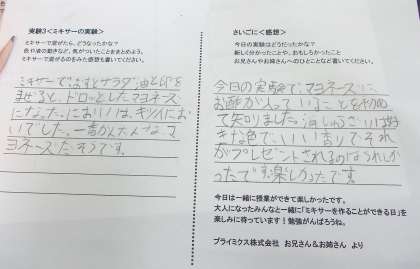 実験3<ミキサーの実験>
ミキサーで混ぜたら、どうなったかな?
色や油の動きなど、気がついたことをまとめよう。
ミキサーで混ぜるのをみた感想も書いてください。
ミキサーでまぜるとサラダ油と卵を
まぜると、ドロッとしたマヨネーズ
になった。においは、キツイにお
いでした。一番かんたんなマ
ヨネーズだそうです。
さいごに<感想>
今日の実験はどうだったかな?
新しく分かったことや、おもしろかったこと
お兄さんやお姉さんへのひとことなど書いてください。
今日の実験で、マヨネーズに
お酢が入っていることを初め
て知りました。
きな色でいい香りでそれ
がプレゼントされるのはうれしか
ったです楽しかったです
今日は一緒に授業ができて楽しかったです。
大人になったみんなと一緒に「ミキサーを作ることができる日」を
楽しみに待っています!勉強がんばろうね。
プライミクス株式会社 お兄さん&お姉さん より